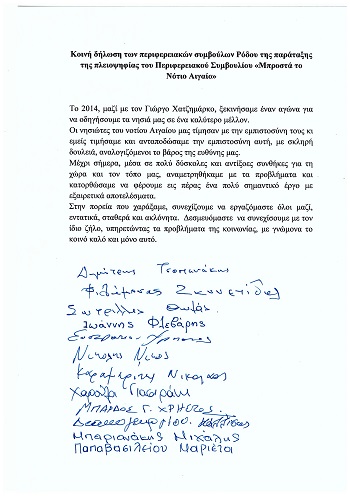 Κοινή δήλωση των περιφερειακών συμβούλων Ρόδου της παράταξης
της πλειοψηφίας του Περιφερειακού Συμβουλίου «Μπροστά το
Νότιο Αιγαίο»
Το 2014, μαζί με τον Γιώργο Χατζημάρκο, ξεκινήσαμε έναν αγώνα για
να οδηγήσουμε τα νησιά μας σε ένα καλύτερο μέλλον.
Οι νησιώτες του νοτίου Αιγαίου μας τίμησαν με την εμπιστοσύνη τους κι
εμείς τιμήσαμε και ανταποδώσαμε την εμπιστοσύνη αυτή, με σκληρή
δουλειά, αναλογιζόμενοι το βάρος της ευθύνης μας.
Μέχρι σήμερα, μέσα σε πολύ δύσκολες και αντίξοες συνθήκες για τη
χώρα και τον τόπο μας, αναμετρηθήκαμε με τα προβλήματα και
κατορθώσαμε να φέρουμε εις πέρας ένα πολύ σημαντικό έργο με
εξαιρετικά αποτελέσματα.
Στην πορεία που χαράξαμε, συνεχίζουμε να εργαζόμαστε όλοι μαζί,
εντατικά, σταθερά και ακλόνητα. Δεσμευόμαστε να συνεχίσουμε με τον
ίδιο ζήλο, υπηρετώντας τα προβλήματα της κοινωνίας, με γνώμονα το
κοινό καλό και μόνο αυτό.
Δημήτρης
Φιλήμονας
Ιωάννης Φλεβάρης
Νικόλαος
Χαρούλα Γιασιράνη
ΜΠΑΡΔΟΣ Γ. ΧΡΗΣΤΟΣ
Μπαριανάκης Μιχάλης
Παπαβασιλείου Μαριέτα